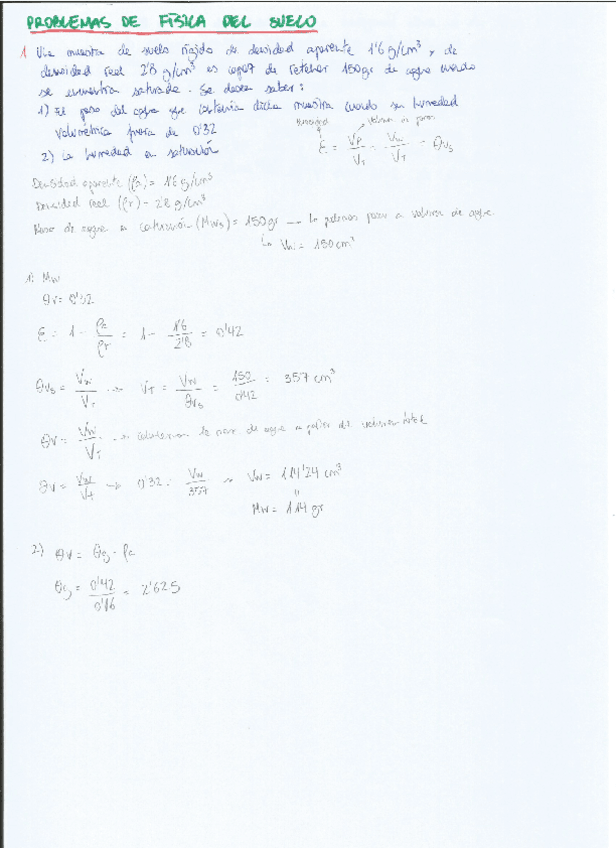 PROBLEMAS DE FÍSICA DEL SUELO
1 Una muestra de suelo rígido de densidad aparente 1'6 g/cm³ y de
densidad real 2'8 g/cm³ es capaz de retener 150gr de agua cuando
se encuentra saturada. Se desea saber:
1) El peso del agua que contenía dicha muestra cuando su humedad
volumétrica fuera de 0'32
2) La humedad en saturación
Porosidad
Volumen de poros
ε = Vp/VT = Vw/VT = θvs
Densidad aparente (ρa) = 1'6 g/cm³
Densidad real (ρr) = 2'8 g/cm³
Masa de agua en saturación (Mws) = 150 gr → la pasamos a volumen de agua
↳ Vw = 150 cm³
1) Mw
θv = 0'32
ε = 1 - ρa/ρr = 1 - 1'6/2'8 = 0'42
θvs = Vw/VT → VT = Vw/θvs = 150/0'42 = 357 cm³
θv = Vw/VT → la masa de agua a partir del volumen total
θv = Vw/VT → 0'32 = Vw/357 → Vw = 114'24 cm³
=
Mw = 114 gr
2) θv = θg · ρa
θg = 0'42/0'16 = 2'625